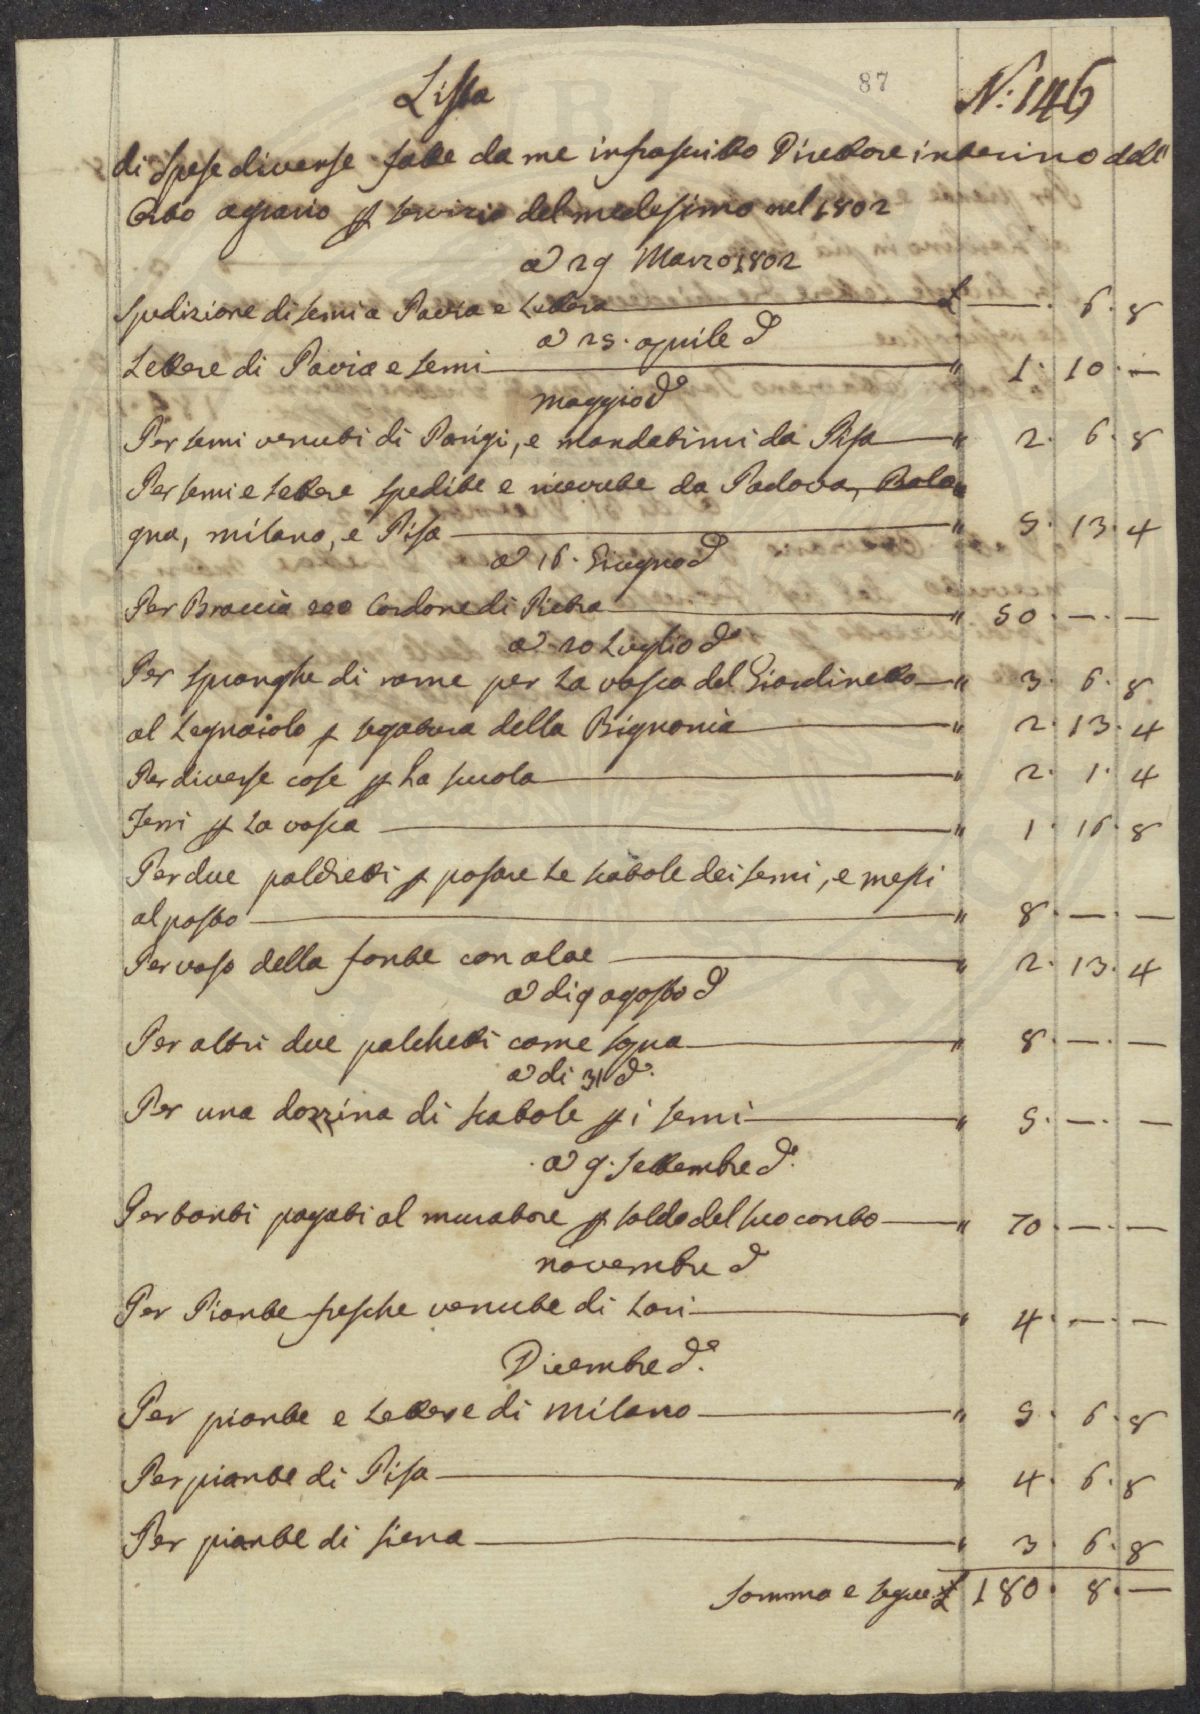 87
N: 146
Lista
di Spese diverse fatte da me infrascritto Direttore interino dell'
Orto agrario p servizio del medesimo nel 1802
a 29 Marzo 1802
Spedizione di semi a Pavia e Lettera £ — . 6 . 8
a 25. aprile do
Lettere di Pavia e semi " 1 . 10 . —
maggio do
Per semi venuti di Parigi, e mandatimi da Pisa " 2 . 6 . 8
Per semi e Lettere spedite e ricevute da Padova, Bolo
gna, milano, e Pisa " 5 . 13 . 4
a 16. Giugno do
Per Braccia 200 Cordone di Pietra " 50 . — . —
a 20 Luglio do
Per spranghe di rame per La vasca del Giardinetto " 3 . 6 . 8
al Legnaiolo p segatura della Bignonia " 2 . 13 . 4
Per diverse cose p La scuola " 2 . 1 . 4
Ferri p La vasca " 1 . 16 . 8
Per due palchetti p posare Le scatole dei semi, e messi
al posto " 8 . — . —
Per vaso della fonte con aloe " 2 . 13 . 4
a di 9 agosto do
Per altri due palchetti come sopra " 8 . — . —
a di 31 do
Per una dozzina di scatole p i semi " 5 . — . —
a 9. Settembre do
Per tanti pagati al muratore p saldo del suo conto " 70 . — . —
novembre do
Per Piante fresche venute di Lari " 4 . — . —
Dicembre do
Per piante e Lettere di milano " 5 . 6 . 8
Per piante di Pisa " 4 . 6 . 8
Per piante di siena " 3 . 6 . 8
Somma e segue £ 180 . 8 . —